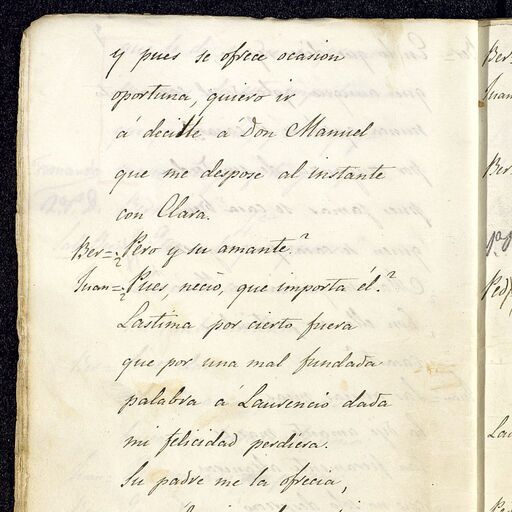 y pues se ofrece ocasion
oportuna, quiero ir
á decille a Don Manuel
que me despose al instante
con Clara.
Ber= ¿Pero y su amante?
Juan= ¿Pues, necio, que importa él?
Lastima por cierto fuera
que por una mal fundada
palabra á Laurencio dada
mi felicidad perdiera.
Su padre me la ofrecia,
Ber=
Juan
Ber=
Ped
Lau